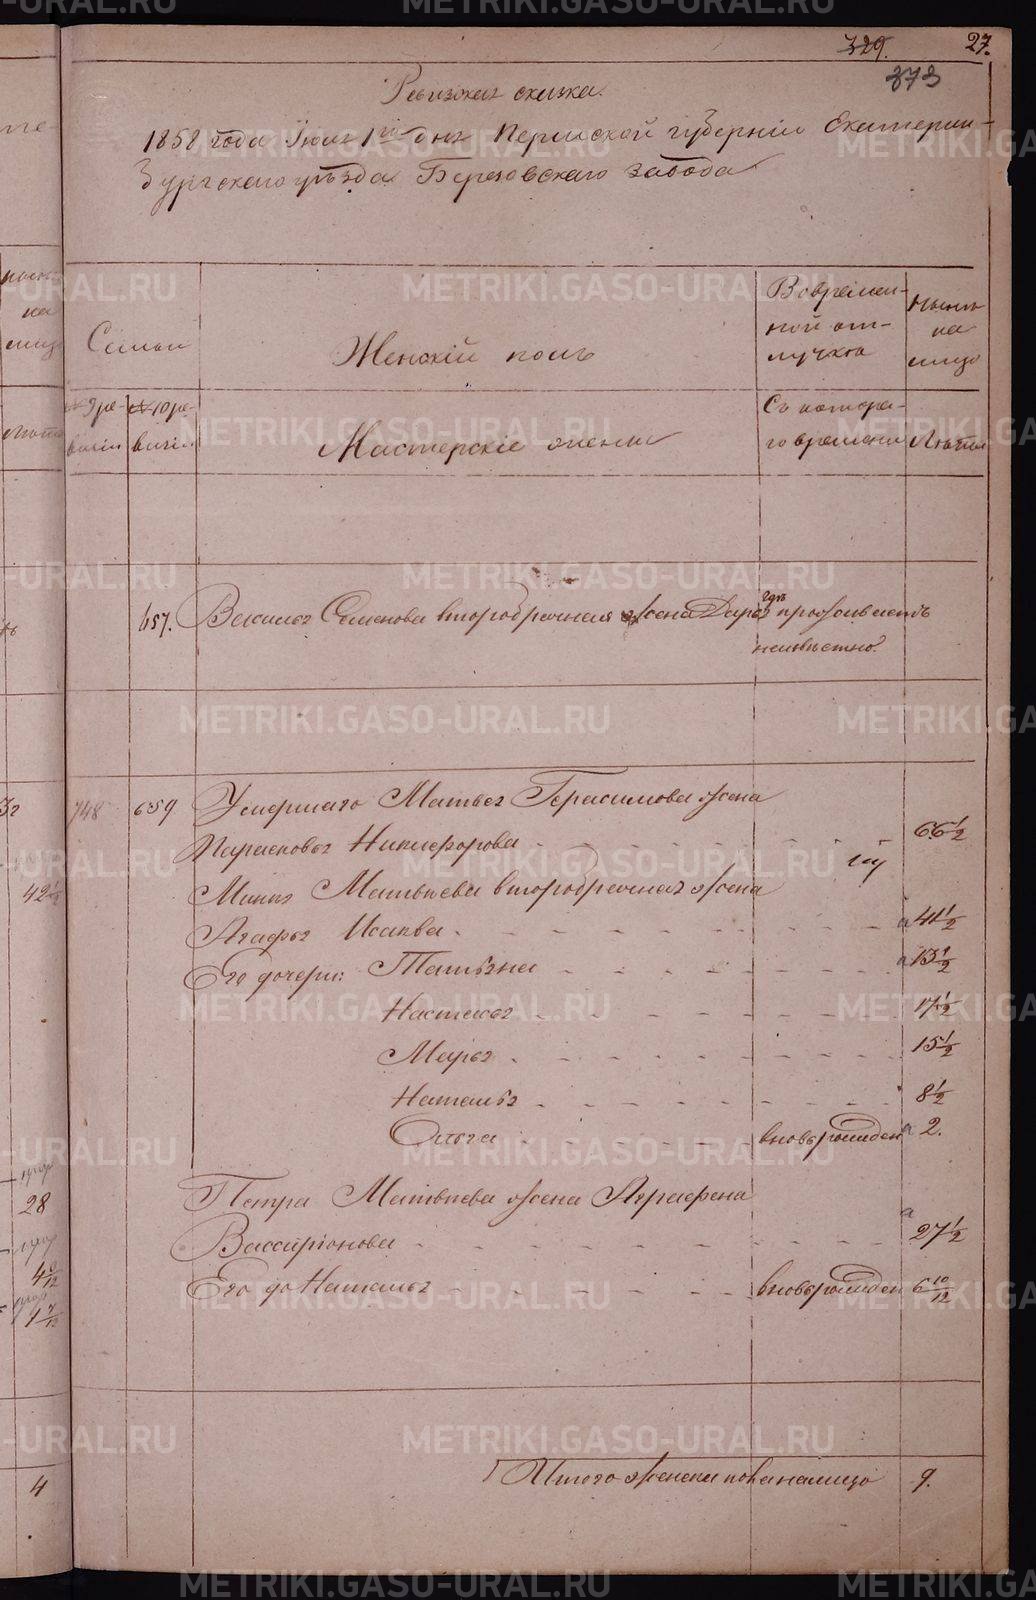 329. 27.
373
Ревизская сказка.
1858 года Июня 1го дня Пермской губернии Екатерин-
бургскаго уѣзда Березовскаго завода
Семьи
Женскій полъ
Во времен-
ной от-
лучкѣ
Нынѣ
на
лицо
№ 9 ре-
визіи
№ 10 ре-
визіи
Мастерскіе жены
Съ котора-
го времени
Лѣта
657. Василья Семенова второбрачная жена Дарья гдѣ проживаетъ
неизвѣстно.
748 659 Умершаго Матвея Герасимова жена
Парасковья Никифорова 66 1/2
Матвѣева второбрачная жена
Агафья Исаква 41 1/2
Его дочери: Татьяна 13 1/2
Настасья 17 1/2
Марья 15 1/2
Наталья 8 1/2
Ольга вновьрожден 2.
Петра Матвѣева жена Аграфена
Виссаріонова 27 1/2
Его до Наталья вновьрожден 6 10/12
Итого женска пола налицо 9.
42 1/2
28
4
METRIKI.GASO-URAL.RU